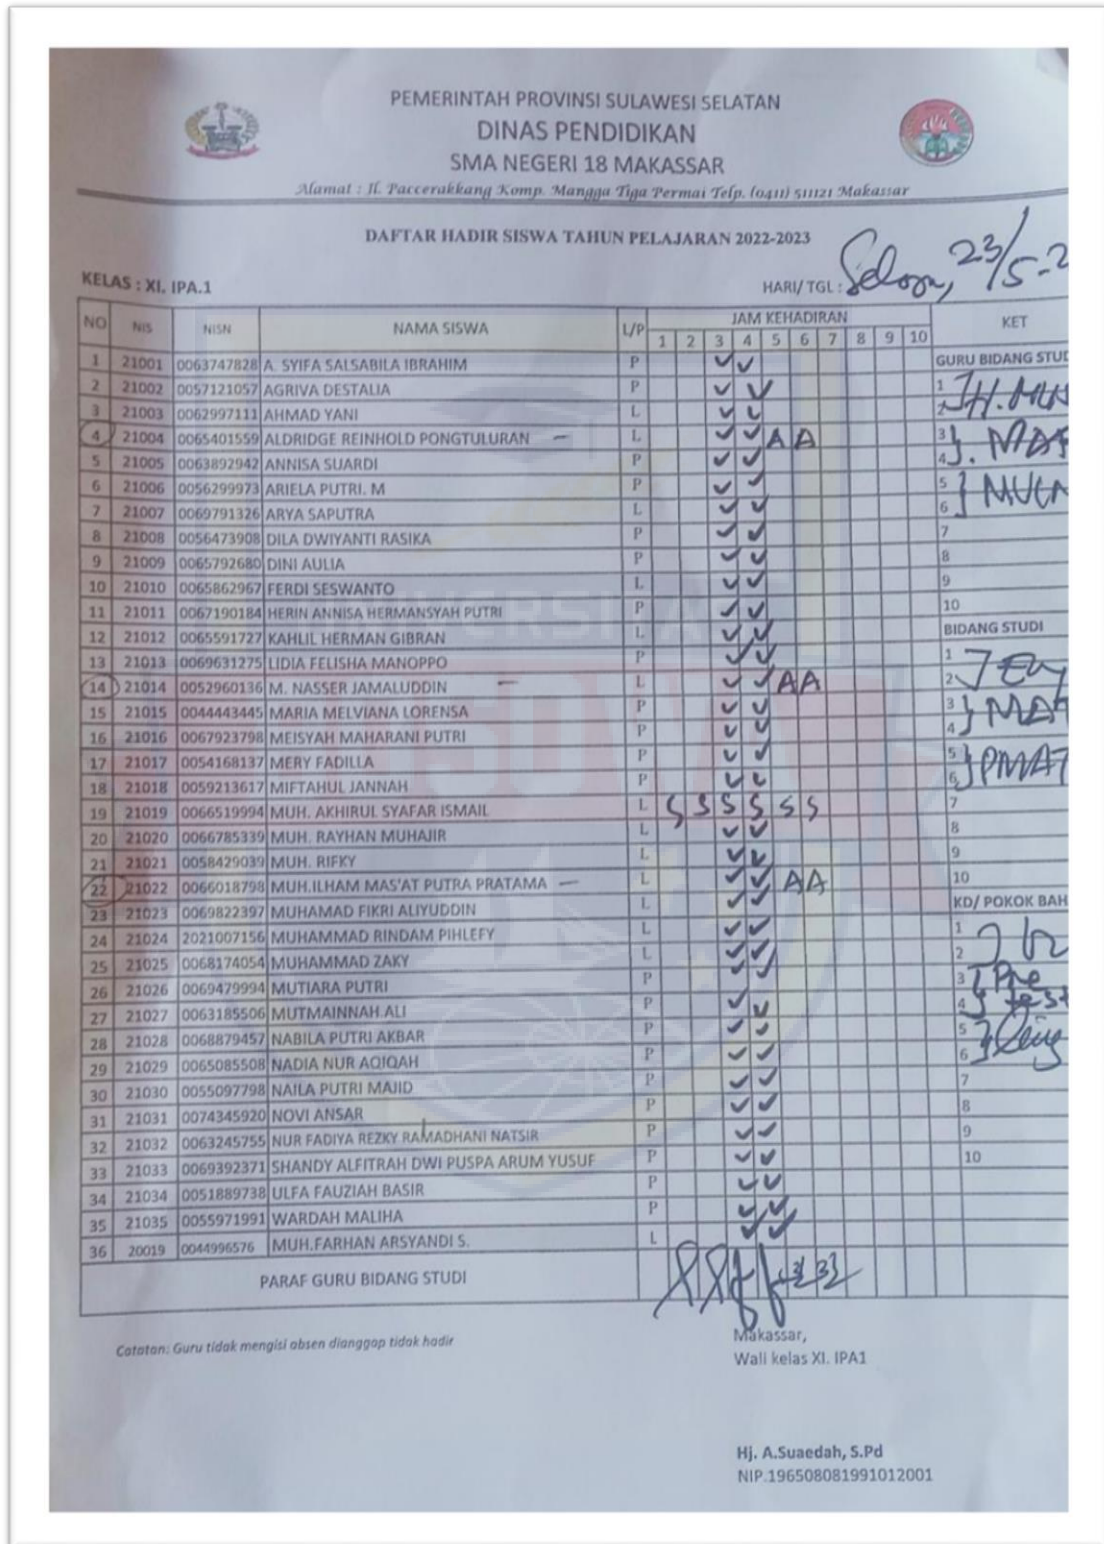 PEMERINTAH PROVINSI SULAWESI SELATAN
DINAS PENDIDIKAN
SMA NEGERI 18 MAKASSAR
Alamat : Jl. Paccerakkang Komp. Mangga Tiga Permai Telp. (0411) 511121 Makassar
DAFTAR HADIR SISWA TAHUN PELAJARAN 2022-2023
KELAS : XI. IPA.1
HARI/ TGL : 23/5-2
NO NIS NISN NAMA SISWA L/P JAM KEHADIRAN KET
1 2 3 4 5 6 7 8 9 10
1 21001 0063747828 A. SYIFA SALSABILA IBRAHIM P ✓ ✓ GURU BIDANG STUD
2 21002 0057121057 AGRIVA DESTALIA P ✓ ✓ 1
3 21003 0062997111 AHMAD YANI L ✓ ✓ 2
4 21004 0065401559 ALDRIDGE REINHOLD PONGTULURAN – L ✓ ✓ A A 3
5 21005 0063892942 ANNISA SUARDI P ✓ ✓ 4
6 21006 0056299973 ARIELA PUTRI. M P ✓ ✓ 5
7 21007 0069791326 ARYA SAPUTRA L ✓ ✓ 6
8 21008 0056473908 DILA DWIYANTI RASIKA P ✓ ✓ 7
9 21009 0065792680 DINI AULIA P ✓ ✓ 8
10 21010 0065862967 FERDI SESWANTO L ✓ ✓ 9
11 21011 0067190184 HERIN ANNISA HERMANSYAH PUTRI P ✓ ✓ 10
12 21012 0065591727 KAHLIL HERMAN GIBRAN L ✓ ✓ BIDANG STUDI
13 21013 0069631275 LIDIA FELISHA MANOPPO P ✓ ✓ 1
14 21014 0052960136 M. NASSER JAMALUDDIN – L ✓ ✓ A A 2
15 21015 0044443445 MARIA MELVIANA LORENSA P ✓ ✓ 3 } MAT
16 21016 0067923798 MEISYAH MAHARANI PUTRI P ✓ ✓ 4
17 21017 0054168137 MERY FADILLA P ✓ ✓ 5 } PMAT
18 21018 0059213617 MIFTAHUL JANNAH P ✓ ✓ 6
19 21019 0066519994 MUH. AKHIRUL SYAFAR ISMAIL L S S S S S S 7
20 21020 0066785339 MUH. RAYHAN MUHAJIR L ✓ ✓ 8
21 21021 0058429039 MUH. RIFKY L ✓ ✓ 9
22 21022 0066018798 MUH.ILHAM MAS'AT PUTRA PRATAMA – L ✓ ✓ A A 10
23 21023 0069822397 MUHAMAD FIKRI ALIYUDDIN L ✓ ✓ KD/ POKOK BAH
24 21024 2021007156 MUHAMMAD RINDAM PIHLEFY L ✓ ✓ 1
25 21025 0068174054 MUHAMMAD ZAKY L ✓ ✓ 2
26 21026 0069479994 MUTIARA PUTRI P ✓ ✓ 3 } Pre
27 21027 0063185506 MUTMAINNAH ALI P ✓ ✓ 4 test
28 21028 0068879457 NABILA PUTRI AKBAR P ✓ ✓ 5
29 21029 0065085508 NADIA NUR AQIQAH P ✓ ✓ 6
30 21030 0055097798 NAILA PUTRI MAJID P ✓ ✓ 7
31 21031 0074345920 NOVI ANSAR P ✓ ✓ 8
32 21032 0063245755 NUR FADIYA REZKY RAMADHANI NATSIR P ✓ ✓ 9
33 21033 0069392371 SHANDY ALFITRAH DWI PUSPA ARUM YUSUF P ✓ ✓ 10
34 21034 0051889738 ULFA FAUZIAH BASIR P ✓ ✓
35 21035 0055971991 WARDAH MALIHA P ✓ ✓
36 20019 0044996576 MUH.FARHAN ARSYANDI S. L ✓ ✓
PARAF GURU BIDANG STUDI
Catatan: Guru tidak mengisi absen dianggap tidak hadir
Makassar,
Wali kelas XI. IPA1
Hj. A.Suaedah, S.Pd
NIP.196508081991012001